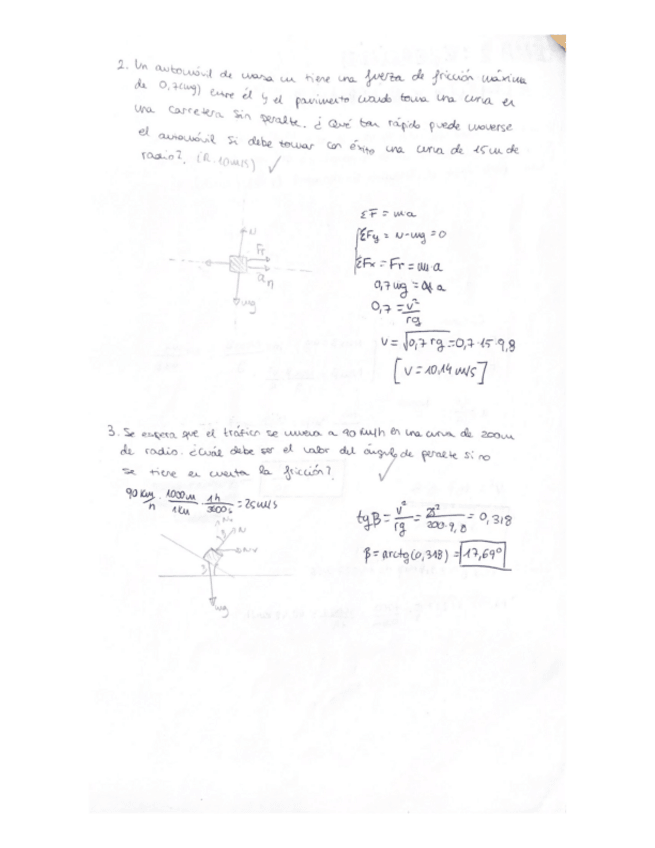 2. Un automóvil de masa m tiene una fuerza de fricción máxima
de 0,7(mg) entre él y el pavimento cuando toma una curva en
una carretera sin peralte. ¿Qué tan rápido puede moverse
el automóvil si debe tomar con éxito una curva de 15m de
radio?. (R. 10m/s) ✓
N
Fr
an
mg
ΣF = ma
ΣFy = N-mg = 0
ΣFx = Fr = m a
0,7mg = m a
0,7 = v²/rg
v = √0,7 rg = 0,7·15·9,8
[v = 10,14 m/s]
3. Se espera que el tráfico se mueva a 90 Km/h en una curva de 200m
de radio. ¿Cuál debe ser el valor del ángulo de peralte si no
se tiene en cuenta la fricción? ✓
90 Km/h · 1000m/1Km · 1h/3600s = 25m/s
N
mg
tgβ = v²/rg = 25²/200·9,8 = 0,318
β = arctg(0,318) = 17,69°